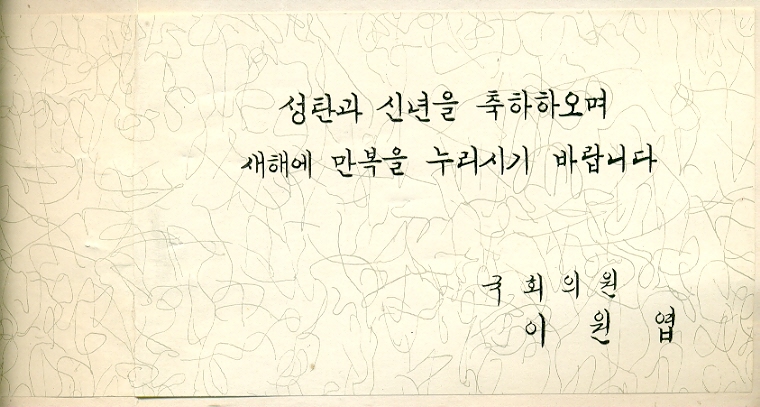 성탄과 신년을 축하하오며
새해에 만복을 누리시기 바랍니다
국회의원
이 원 엽